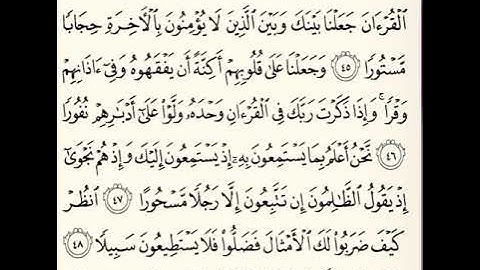 ٱلۡقُرۡءَانَ جَعَلۡنَا بَيۡنَكَ وَبَيۡنَ ٱلَّذِينَ لَا يُؤۡمِنُونَ بِٱلۡأٓخِرَةِ حِجَابٗا
مَّسۡتُورٗا ٤٥ وَجَعَلۡنَا عَلَىٰ قُلُوبِهِمۡ أَكِنَّةً أَن يَفۡقَهُوهُ وَفِيٓ ءَاذَانِهِمۡ
وَقۡرٗاۚ وَإِذَا ذَكَرۡتَ رَبَّكَ فِي ٱلۡقُرۡءَانِ وَحۡدَهُۥ وَلَّوۡاْ عَلَىٰٓ أَدۡبَٰرِهِمۡ نُفُورٗا
٤٦ نَّحۡنُ أَعۡلَمُ بِمَا يَسۡتَمِعُونَ بِهِۦٓ إِذۡ يَسۡتَمِعُونَ إِلَيۡكَ وَإِذۡ هُمۡ نَجۡوَىٰٓ
إِذۡ يَقُولُ ٱلظَّٰلِمُونَ إِن تَتَّبِعُونَ إِلَّا رَجُلٗا مَّسۡحُورًا ٤٧ ٱنظُرۡ
كَيۡفَ ضَرَبُواْ لَكَ ٱلۡأَمۡثَالَ فَضَلُّواْ فَلَا يَسۡتَطِيعُونَ سَبِيلٗا ٤٨